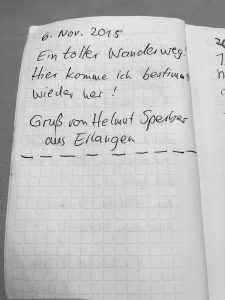 6. Nov. 2015
Ein toller Wanderweg!
Hier komme ich bestimmt
wieder her!
Gruß von Helmut Sperber
aus Erlangen